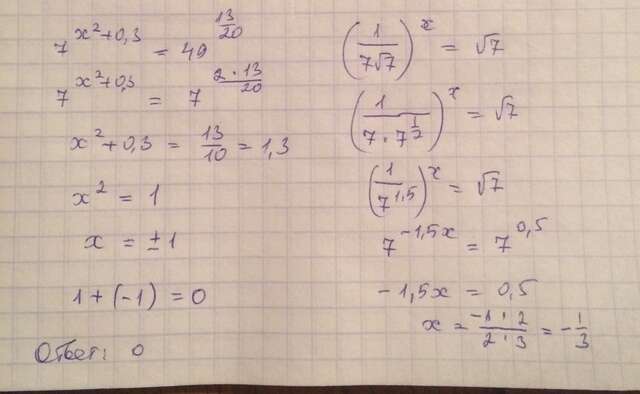 7^(x²+0,3) = 49^(13/20)
7^(x²+0,3) = 7^(2·13/20)
x²+0,3 = 13/10 = 1,3
x² = 1
x = ±1
1+(-1) = 0
Ответ: 0
(1/(7√7))^x = √7
(1/(7·7^(1/2)))^x = √7
(1/7^(1,5))^x = √7
7^(-1,5x) = 7^(0,5)
-1,5x = 0,5
x = (-1·2)/(2·3) = -1/3